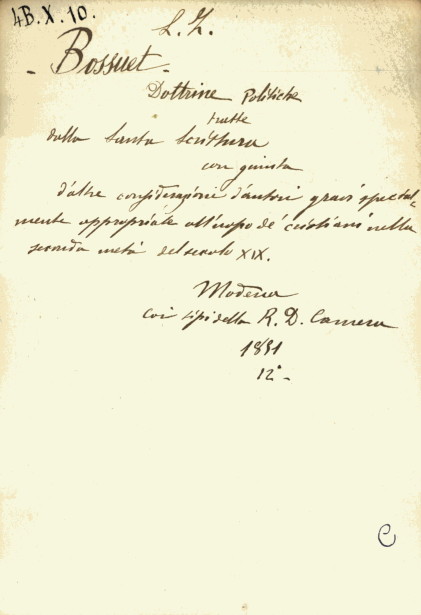 4B.X.10.
L. Z.
- Bossuet -
Dottrine Politiche
tratte
dalla Santa Scrittura
con giunta
d'altre considerazioni d'autori gravi special-
mente appropriate all'uopo de' cristiani nella
seconda metà del secolo XIX.
Modena
coi tipi della R. D. Camera
1851
12° -
C